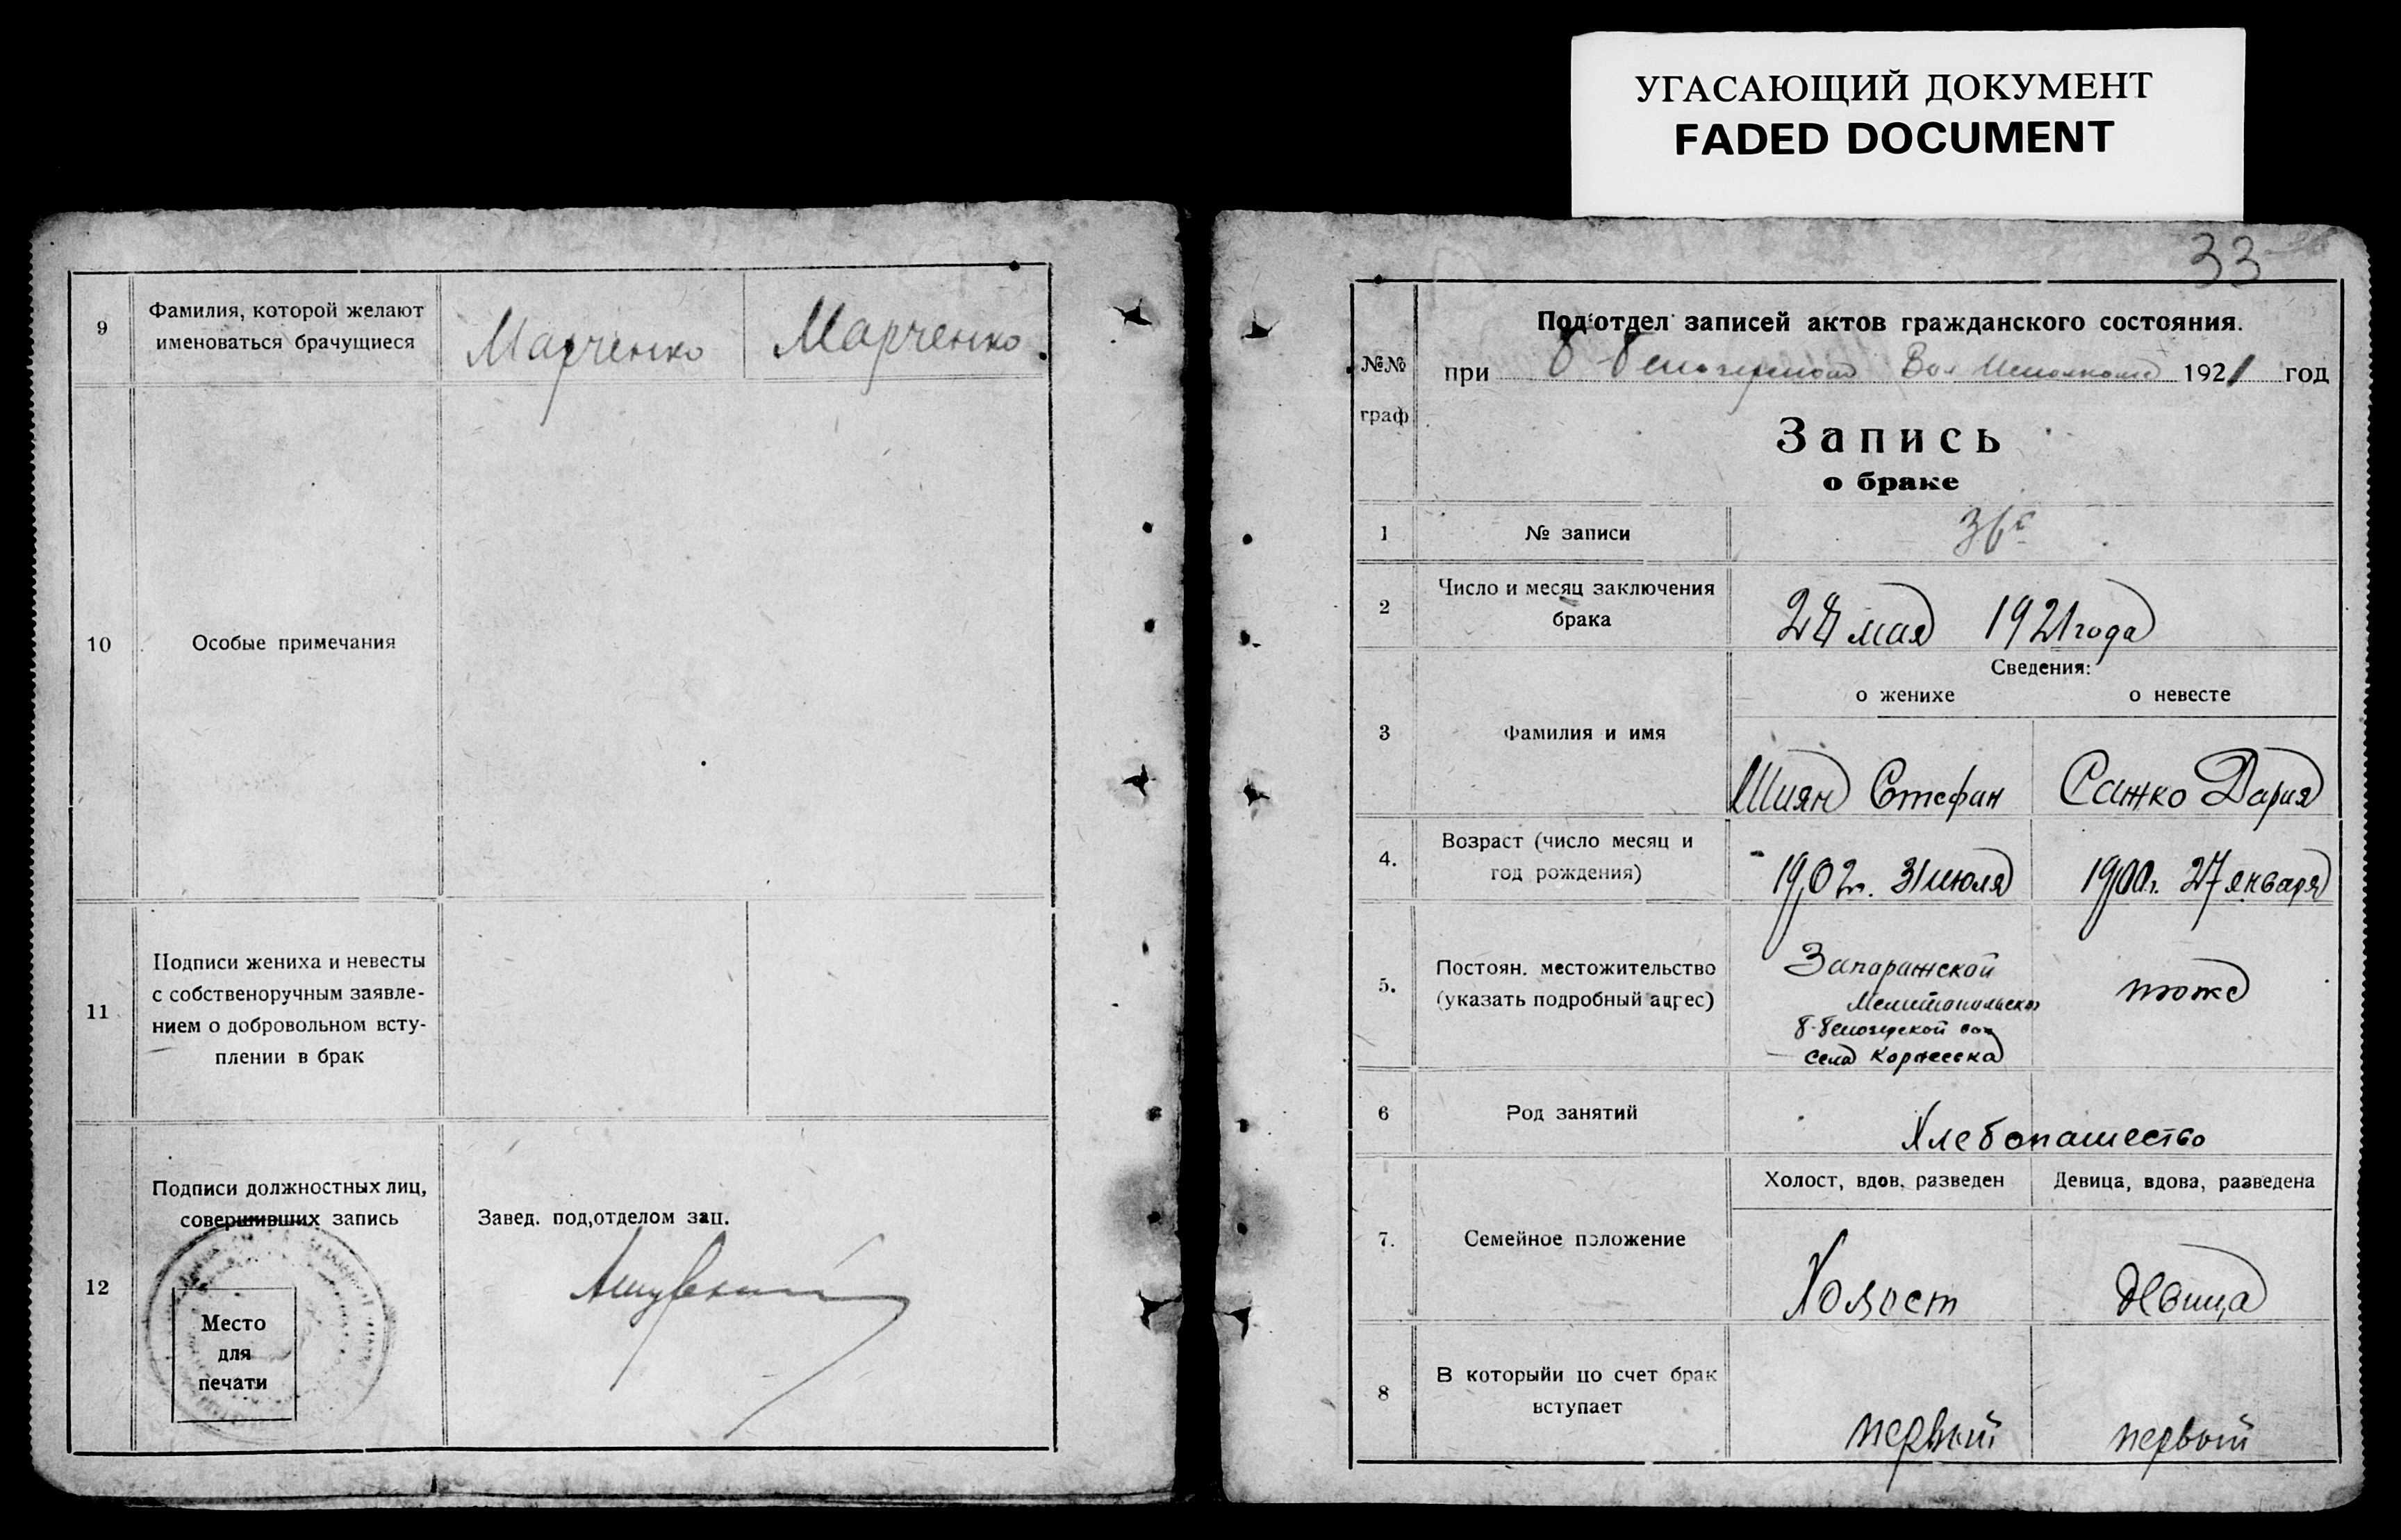 УГАСАЮЩИЙ ДОКУМЕНТ
FADED DOCUMENT
9
Фамилия, которой желают
именоваться брачущиеся
Марченко
Марченко
10
Особые примечания
11
Подписи жениха и невесты
с собственоручным заявле-
нием о добровольном всту-
плении в брак
12
Подписи должностных лиц,
совершивших запись
Место
для
печати
Завед. под,отделом зап.
33
№№
граф
Под'отдел записей актов гражданского состояния.
при Вол 1921 год
Запись
о браке
1
№ записи
36
2
Число и месяц заключения
брака
28 мая 1921 года
Сведения:
о женихе
о невесте
3
Фамилия и имя
Шиян Стефан
Санжко Дария
4.
Возраст (число месяц и
год рождения)
1902 г. 31 июля
1900 г. 27 января
5.
Постоян. местожительство
(указать подробный адрес)
Запаражской
Мелитопольской
Села
тоже
6
Род занятий
Хлебопашество
7.
Семейное положение
Холост, вдов. разведен
Девица, вдова, разведена
Холост
девица
8
В которыйи по счет брак
вступает
первый
первый